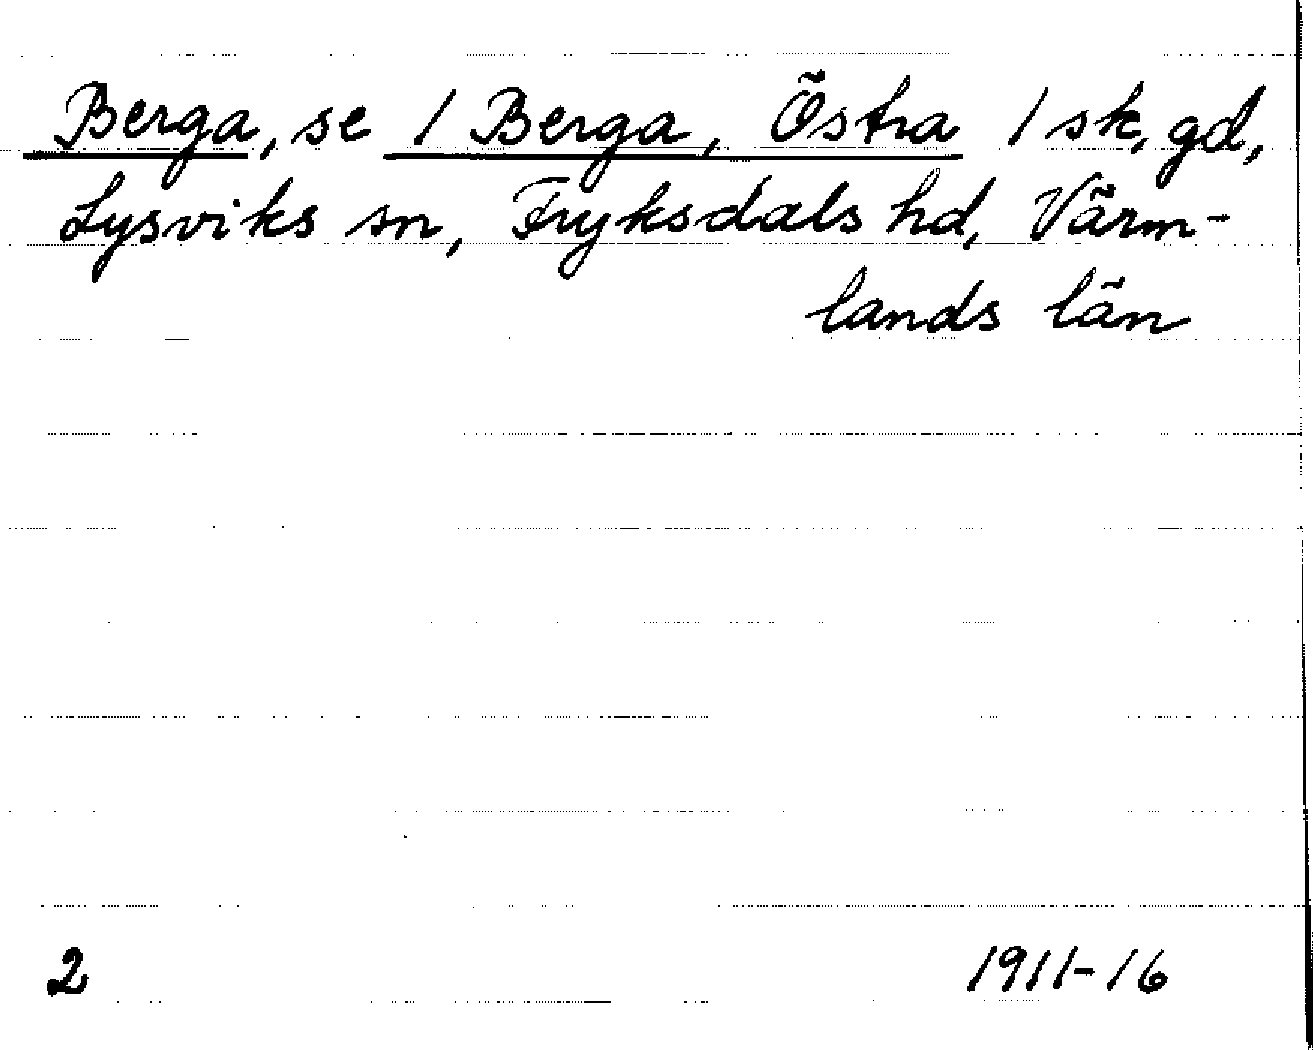 Berga, se 1 Berga, Östra 1 sk, gd,
Lysviks sn, Fryksdals hd, Värm-
lands län
2 1911-16